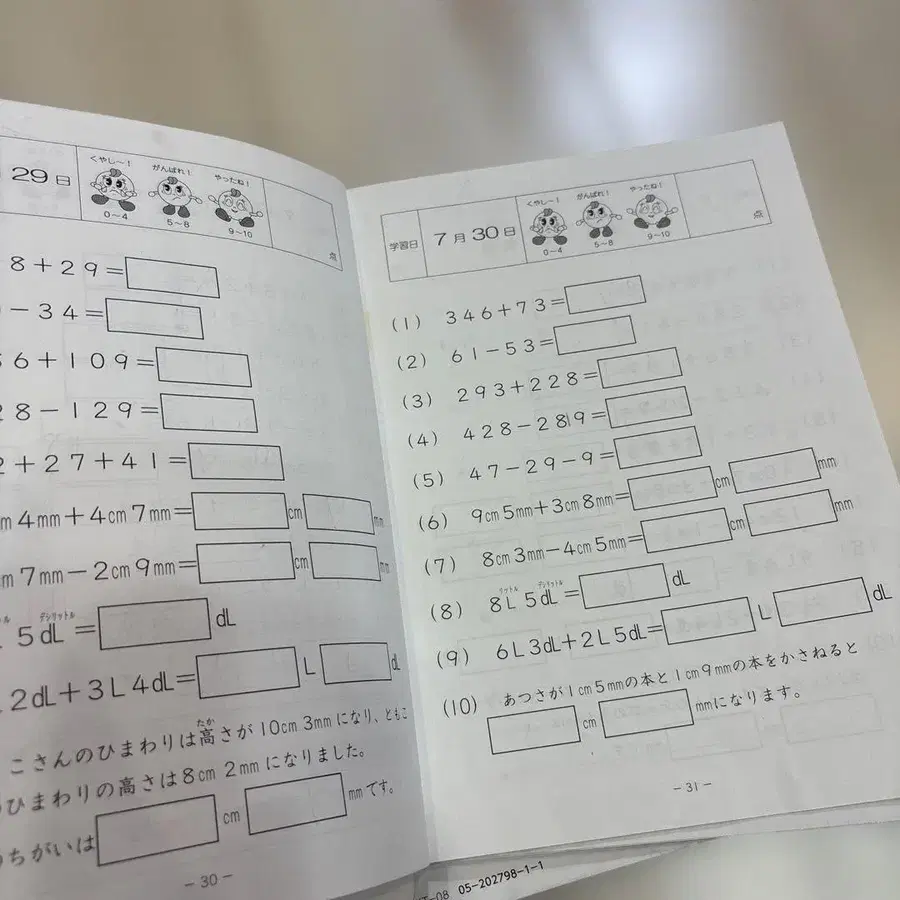 29日
くやし〜!
がんばれ!
やったね!
0〜4
5〜8
9〜10
点
8+29=
-34=
6+109=
28-129=
2+27+41=
4mm+4cm7mm= cm mm
7mm-2cm9mm= cm mm
デシリットル
5dL= dL
2dL+3L4dL= L d
たか
こさんのひまわりは高さが10cm3mmになり、ともこ
ひまわりの高さは8cm2mmになりました。
ちがいは cm mmです。
-30-
学習日
7月30日
くやし〜!
がんばれ!
やったね!
0〜4
5〜8
9〜10
点
(1) 346+73=
(2) 61-53=
(3) 293+228=
(4) 428-289=
(5) 47-29-9=
(6) 9cm5mm+3cm8mm= cm mm
(7) 8cm3mm-4cm5mm= cm mm
リットル デシリットル
(8) 8L5dL= dL
(9) 6L3dL+2L5dL= L dL
(10) あつさが1cm5mmの本と1cm9mmの本をかさねると
cm mmになります。
-31-
-08 05-202798-1-1